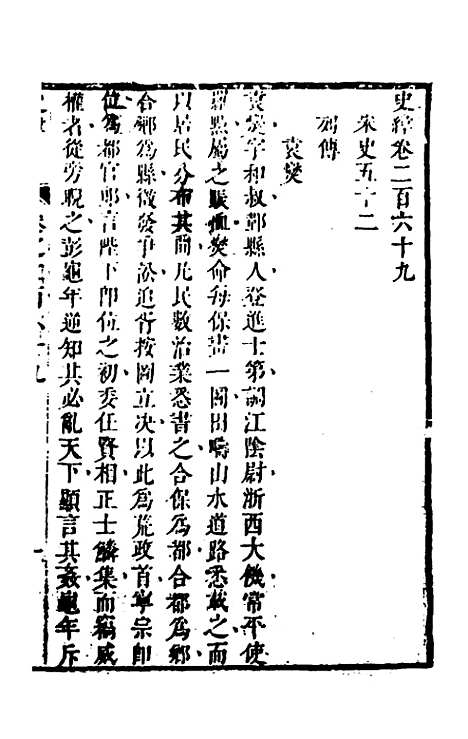 史緯卷二百六十九
宋史五十二
列傳
袁燮
袁燮字和叔鄞縣人登進士第調江陰尉浙西大饑常平使
羅點屬之賑恤燮命每保畫一圖田疇山水道路悉載之而
以居民分布其間凡民數治業悉書之合保爲都合都爲鄉
合鄉爲縣徵發爭訟追胥按圖立决以此爲荒政首寧宗卽
位爲都官郎言陛下卽位之初委任賢相正士鱗集而竊威
權者從旁睨之彭龜年逆知其必亂天下顯言其姦龜年斥